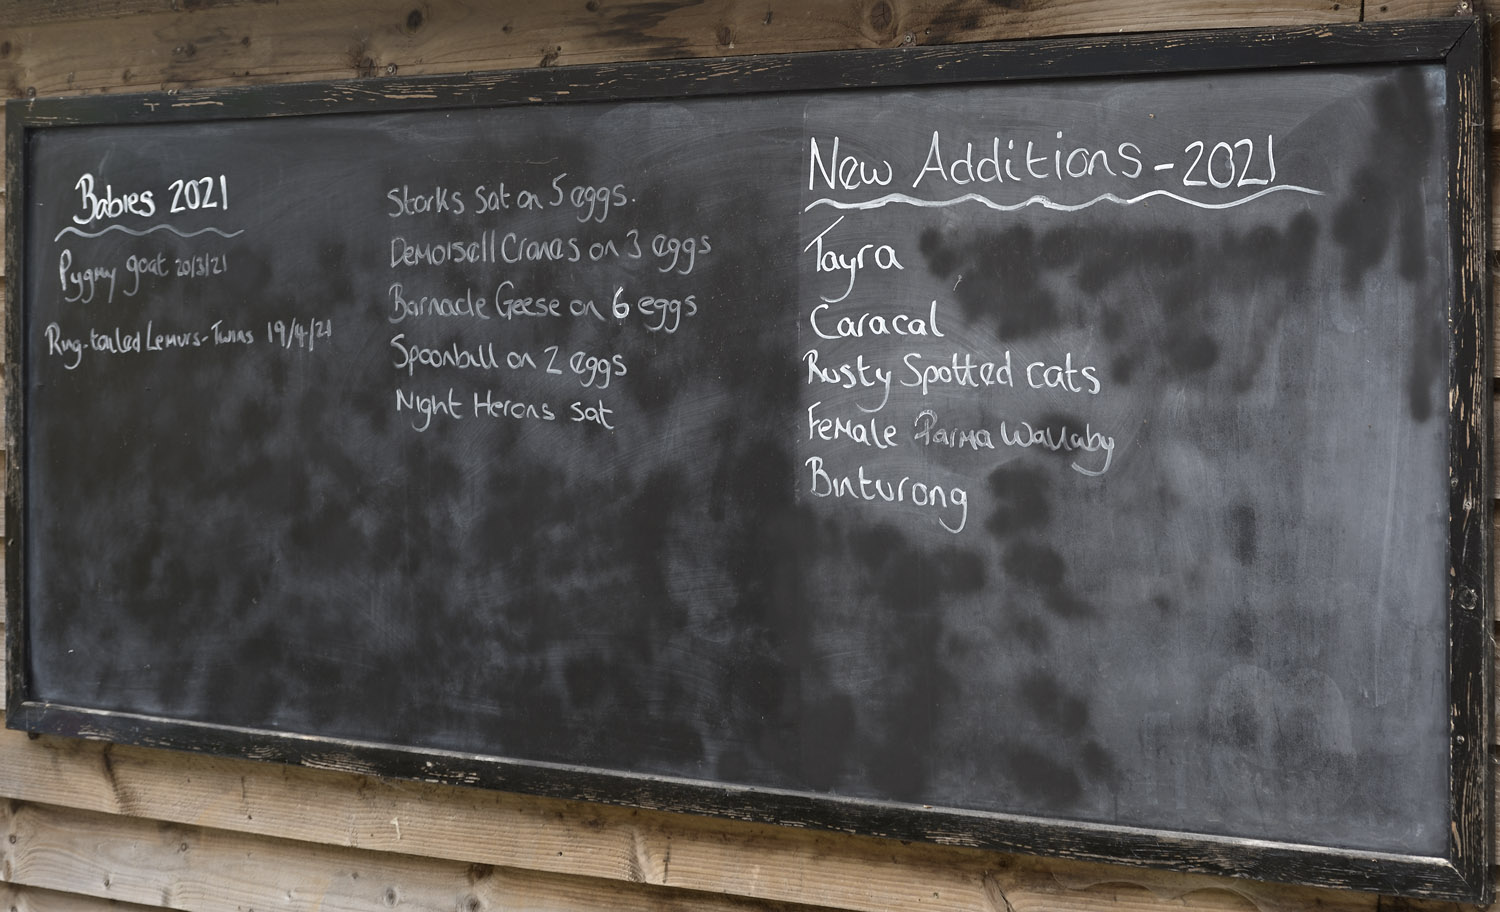 Babies 2021
Pygmy goat 20/3/21
Ring-tailed Lemurs-Twins 19/4/21
Storks Sat on 5 eggs.
Demoisell Cranes on 3 eggs
Barnacle Geese on 6 eggs
Spoonbill on 2 eggs
Night Herons sat
New Additions - 2021
Tayra
Caracal
Rusty Spotted cats
Female Parma Wallaby
Binturong